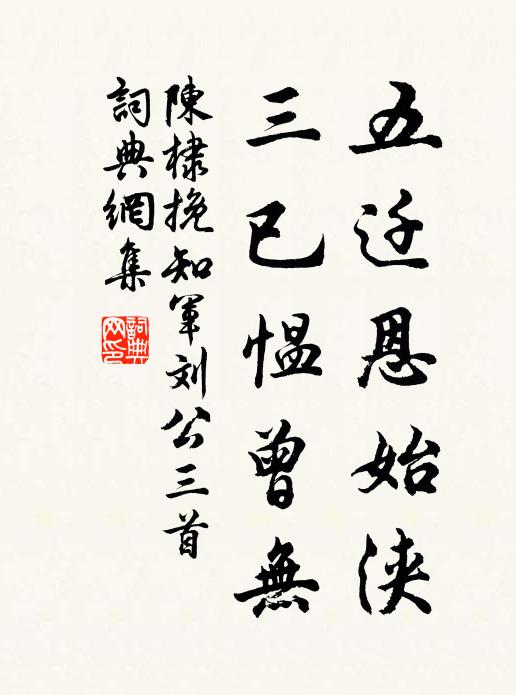 五迁恩始浹
三已愠曾無
陳棣挽知軍刘公三首
詞典網集
詞典網印